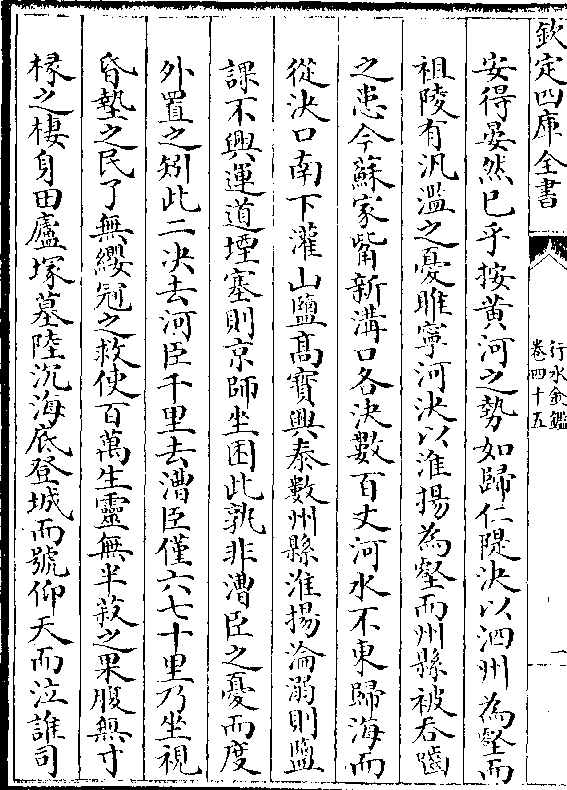 欽定四庫全書
行水金鑑
卷四十五
一
安得晏然已乎按黄河之勢如歸仁隄決以泗州為壑而
祖陵有汎濫之憂睢寧河決以淮揚為壑而州縣被吞齧
之患今蘇家嘴新溝口各決數百丈河水不東歸海而
從決口南下灌山鹽髙寳興泰數州縣淮揚淪溺則鹽
課不興運道堙塞則京師坐困此孰非漕臣之憂而度
外置之矧此二决去河臣千里去漕臣僅六七十里乃坐視
昏墊之民了無纓冠之救使百萬生靈無半菽之果腹無寸
椽之棲身田廬塚墓陸沉海底登城而號仰天而泣誰司